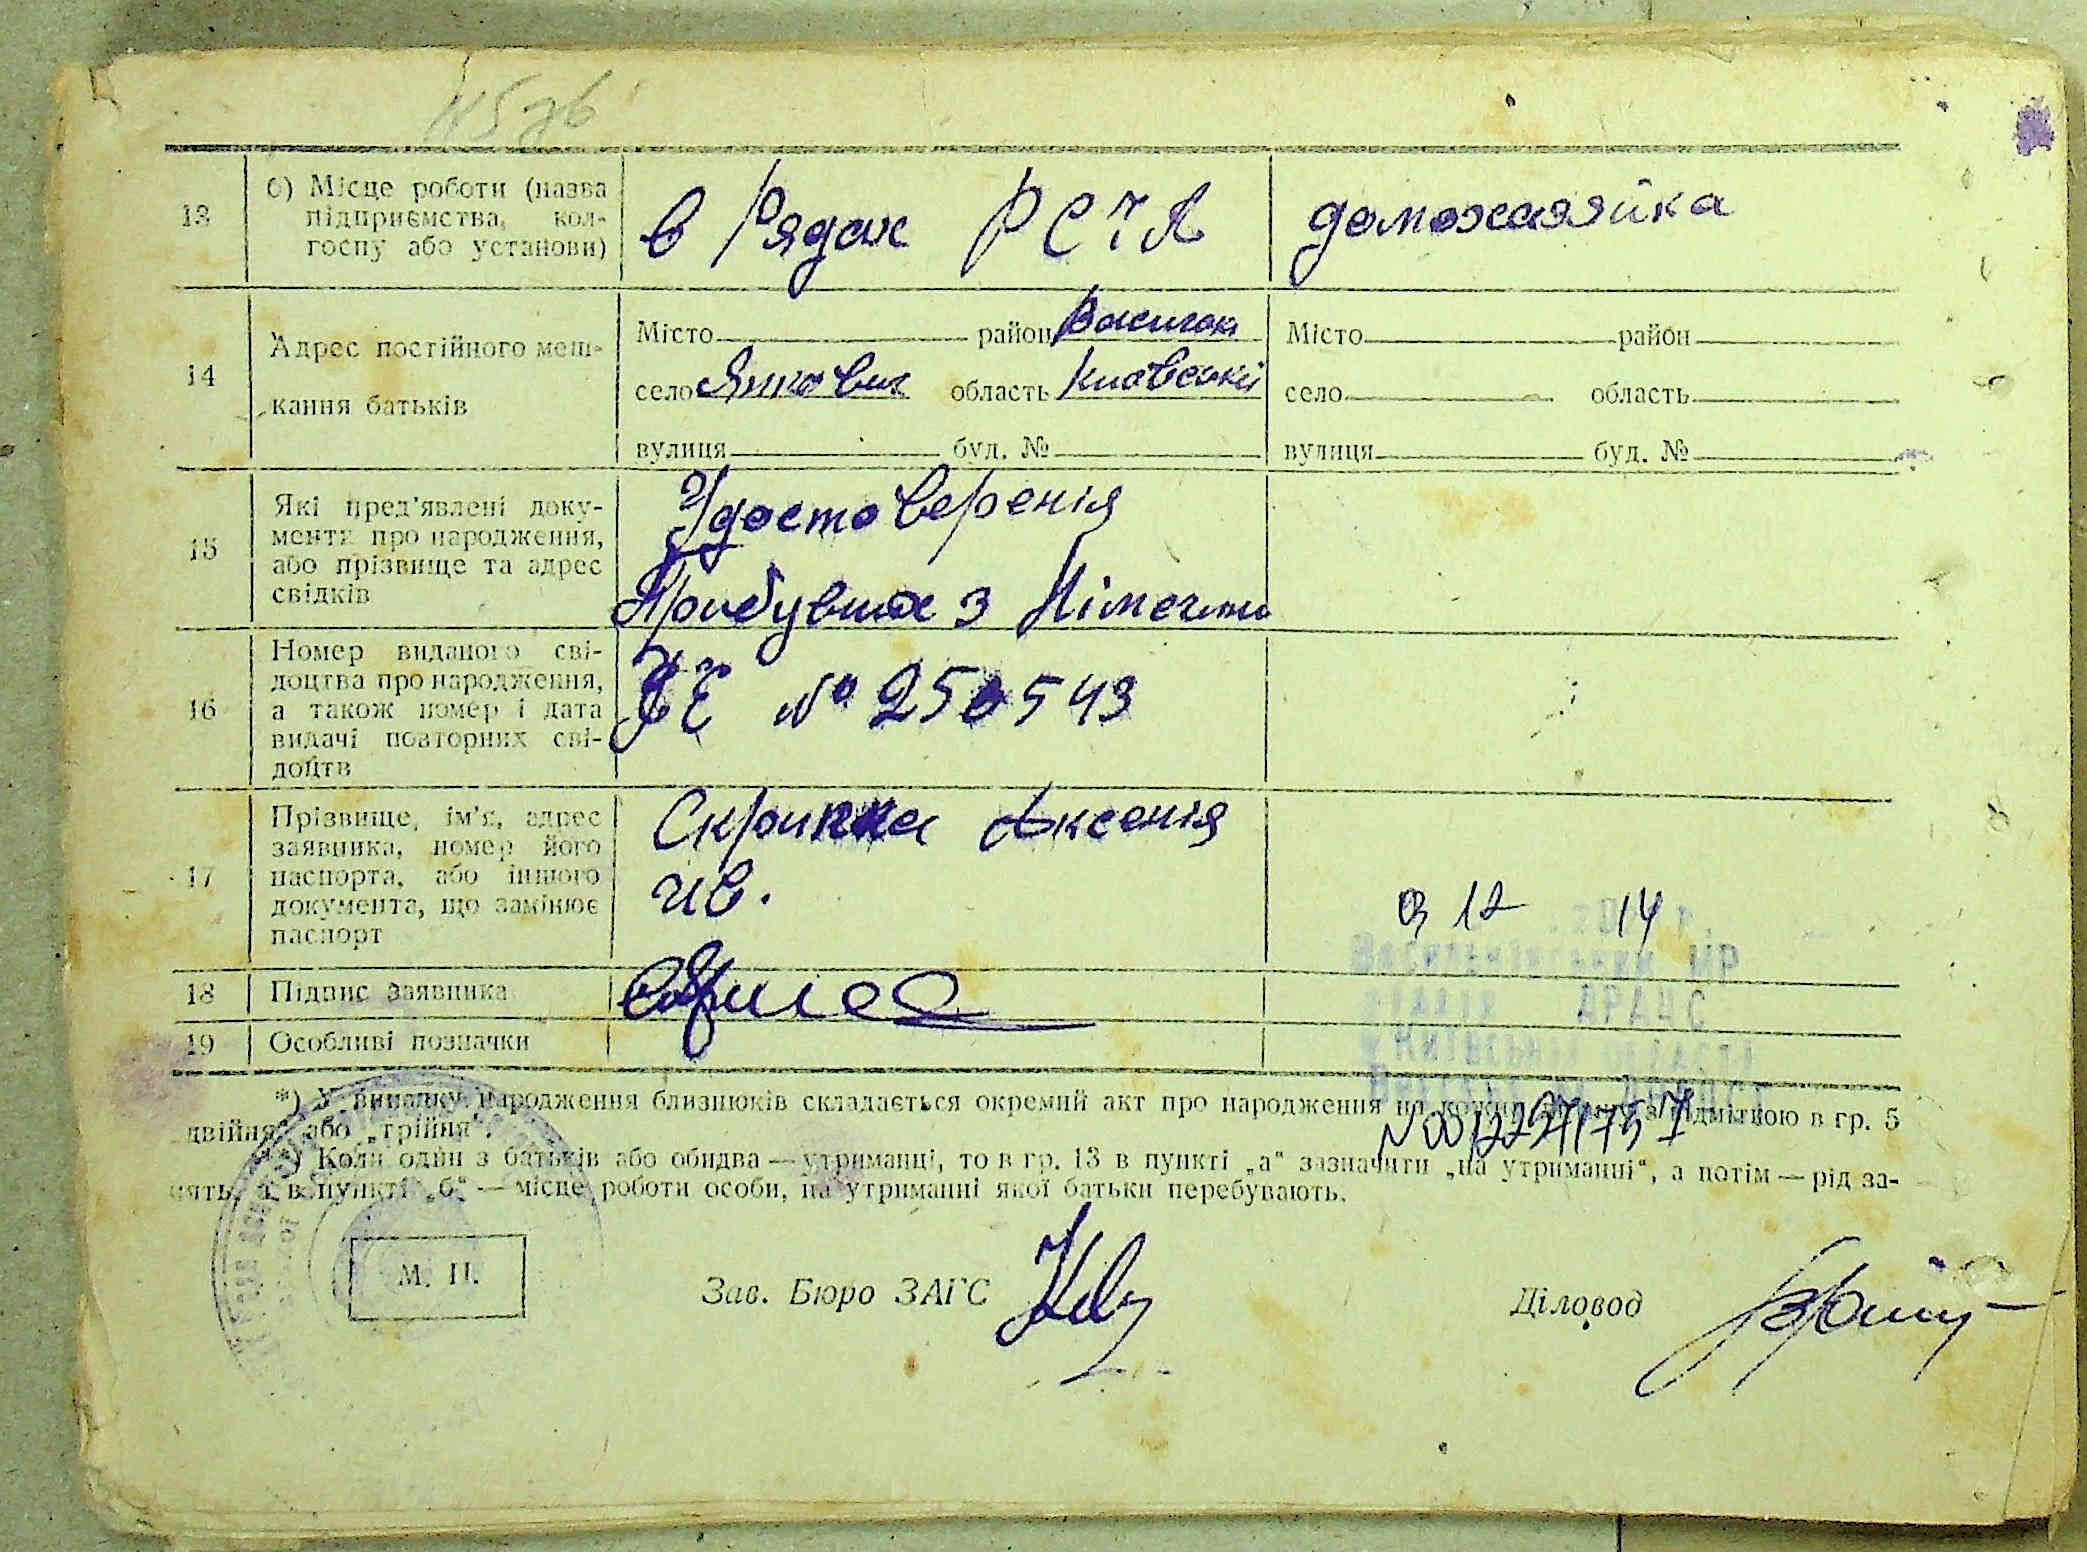 13
б) Місце роботи (назва
підприємства, кол-
госпу або установи)
в Рядах РСЧА
домохазяйка
14
Адрес постійного меш-
кання батьків
Місто район Васильк
село область Київської
вулиця буд. №
Місто район
село область
вулиця буд. №
15
Які пред'явлені доку-
менти про народження,
або прізвище та адрес
свідків
Удостоверенія
Прибувших з Німеччини
16
Номер виданого сві-
доцтва про народження,
а також номер і дата
видачі повторних сві-
доцтв
№ 250543
17
Прізвище, ім'я, адрес
заявника, номер його
паспорта, або іншого
документа, що замінює
паспорт
Скрипка Аксенія
Ив.
12 14
18
Підпис заявника
19
Особливі позначки
*) У випадку народження близнюків складається окремий акт про народження на кожну з відміткою в гр. 5
„двійня“ або „трійня“.
**) Коли один з батьків або обидва — утриманці, то в гр. 13 в пункті „а“ зазначити „на утриманні“, а потім — рід за-
нять, а в пункті „б“ — місце роботи особи, на утриманні якої батьки перебувають.
М. П.
Зав. Бюро ЗАГС
Діловод